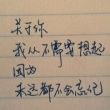 关于你
我从不需要想起
因为
永远都不会忘记